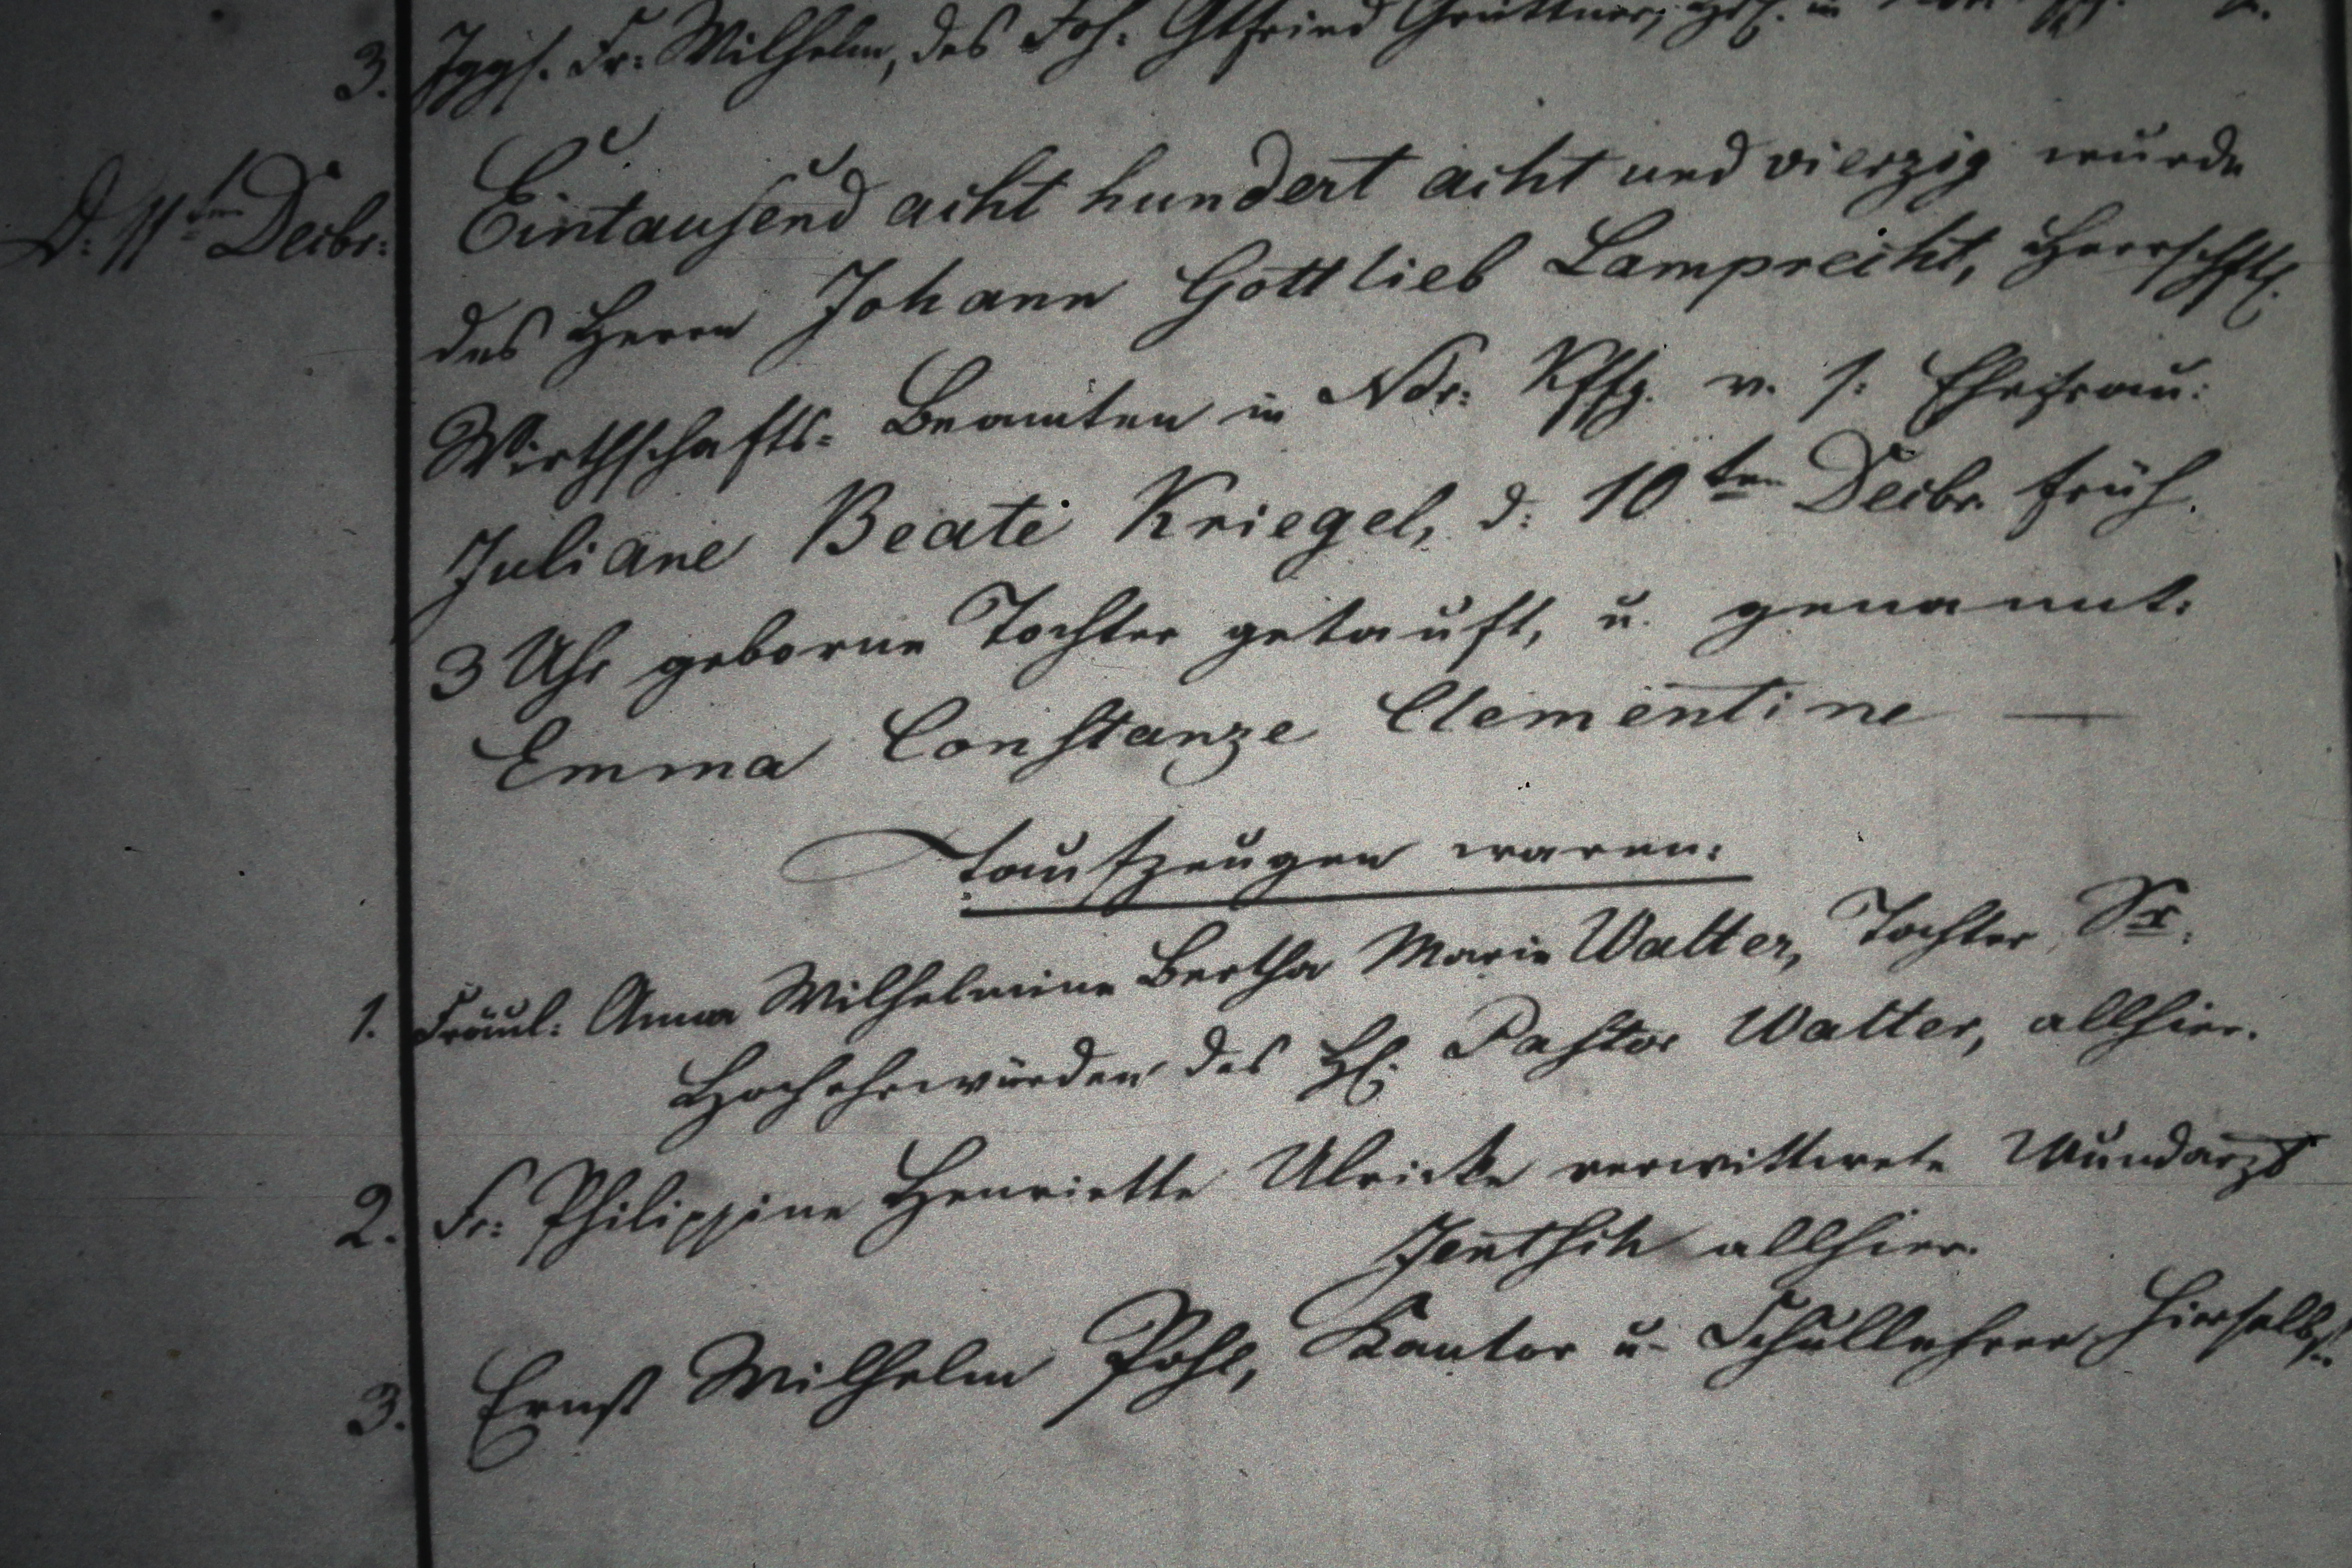 3. Jggs. Fr: Wilhelm, des Joh: Gtfried Grüttner,
D: 11ten Decbr: Eintausend acht hundert acht und vierzig wurde
des Herrn Johann Gottlieb Lamprecht, Herrschftl.
Wirthschafts- Beamten in Ndr: v. s: Ehefrau:
Juliane Beate Kriegel, d: 10ten Decbr. früh.
3 Uhr geborne Tochter getauft, u. genannt:
Emma Constanze Clementine —
Taufzeugen waren:
1. Fräul: Anna Wilhelmine Bertha Marie Walter, Tochter Sr.
Hochehrwürden des H. Pastor Walter, allhier.
2. Fr: Philippine Henriette Ulricke verwittwete Wundarzt
Jentsch allhier.
3. Ernst Wilhelm Pohl, Kantor u. Schullehrer hierselbst.